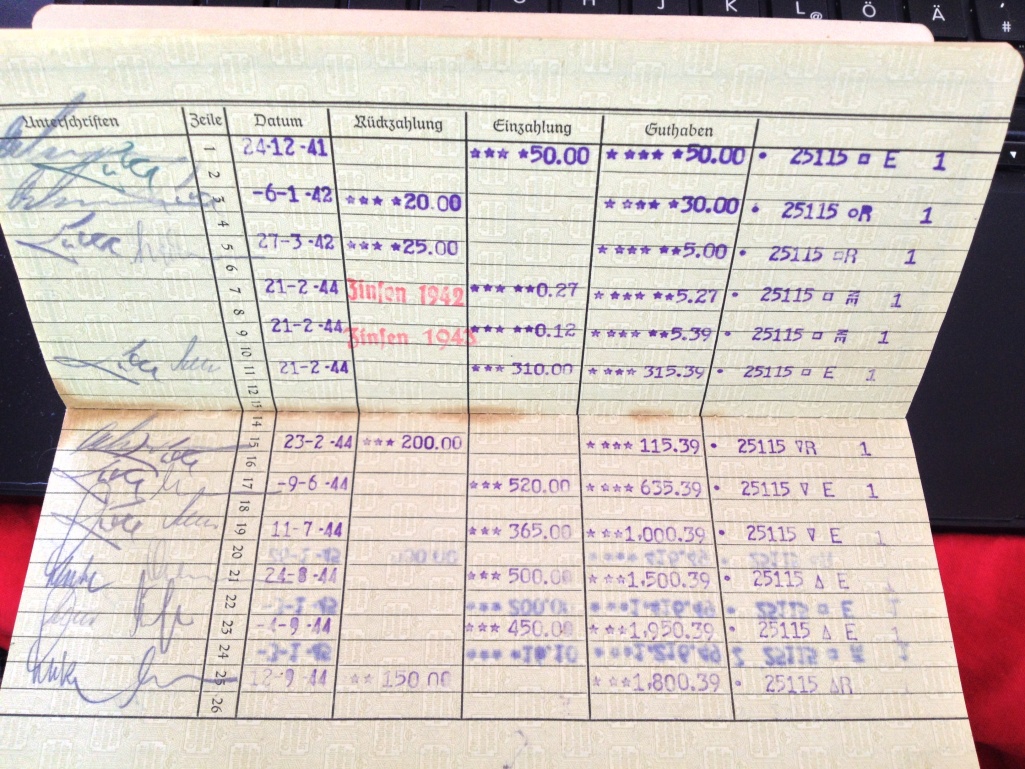 Ö Ä
H J K L @ #
Unterschriften Zeile Datum Rückzahlung Einzahlung Guthaben
1 24-12-41 *** *50.00 **** *50.00 • 25115 □ E 1
2
3 -6-1-42 *** *20.00 **** *30.00 • 25115 ○R 1
4
5 27-3-42 *** *25.00 **** **5.00 • 25115 □R 1
6
7 21-2-44 Zinsen 1942 *** **0.27 **** **5.27 • 25115 □ 1
8
9 21-2-44 Zinsen 1943 *** **0.12 **** **5.39 • 25115 □ 1
10
11 21-2-44 *** 310.00 **** 315.39 • 25115 □ E 1
12
13
14
15 23-2-44 *** 200.00 **** 115.39 • 25115 ▽R 1
16
17 -9-6-44 *** 520.00 **** 635.39 • 25115 ▽ E 1
18
19 11-7-44 *** 365.00 ***1,000.39 • 25115 ▽ E 1
20
21 24-8-44 *** 500.00 ***1,500.39 • 25115 △ E
22
23 -4-9-44 *** 450.00 ***1,950.39 • 25115 △ E
24
25 12-9-44 ** 150.00 ***1,800.39 • 25115 △R
26